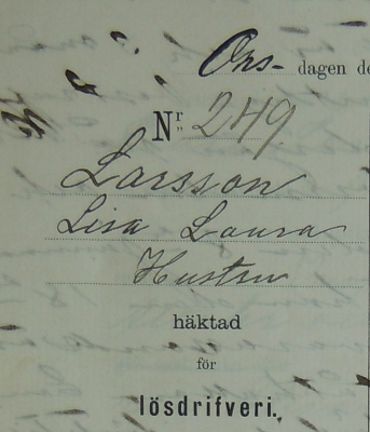 Ons-dagen de
Nr 249
Larsson
Lisa Laura
Hustru
häktad
för
lösdrifveri.